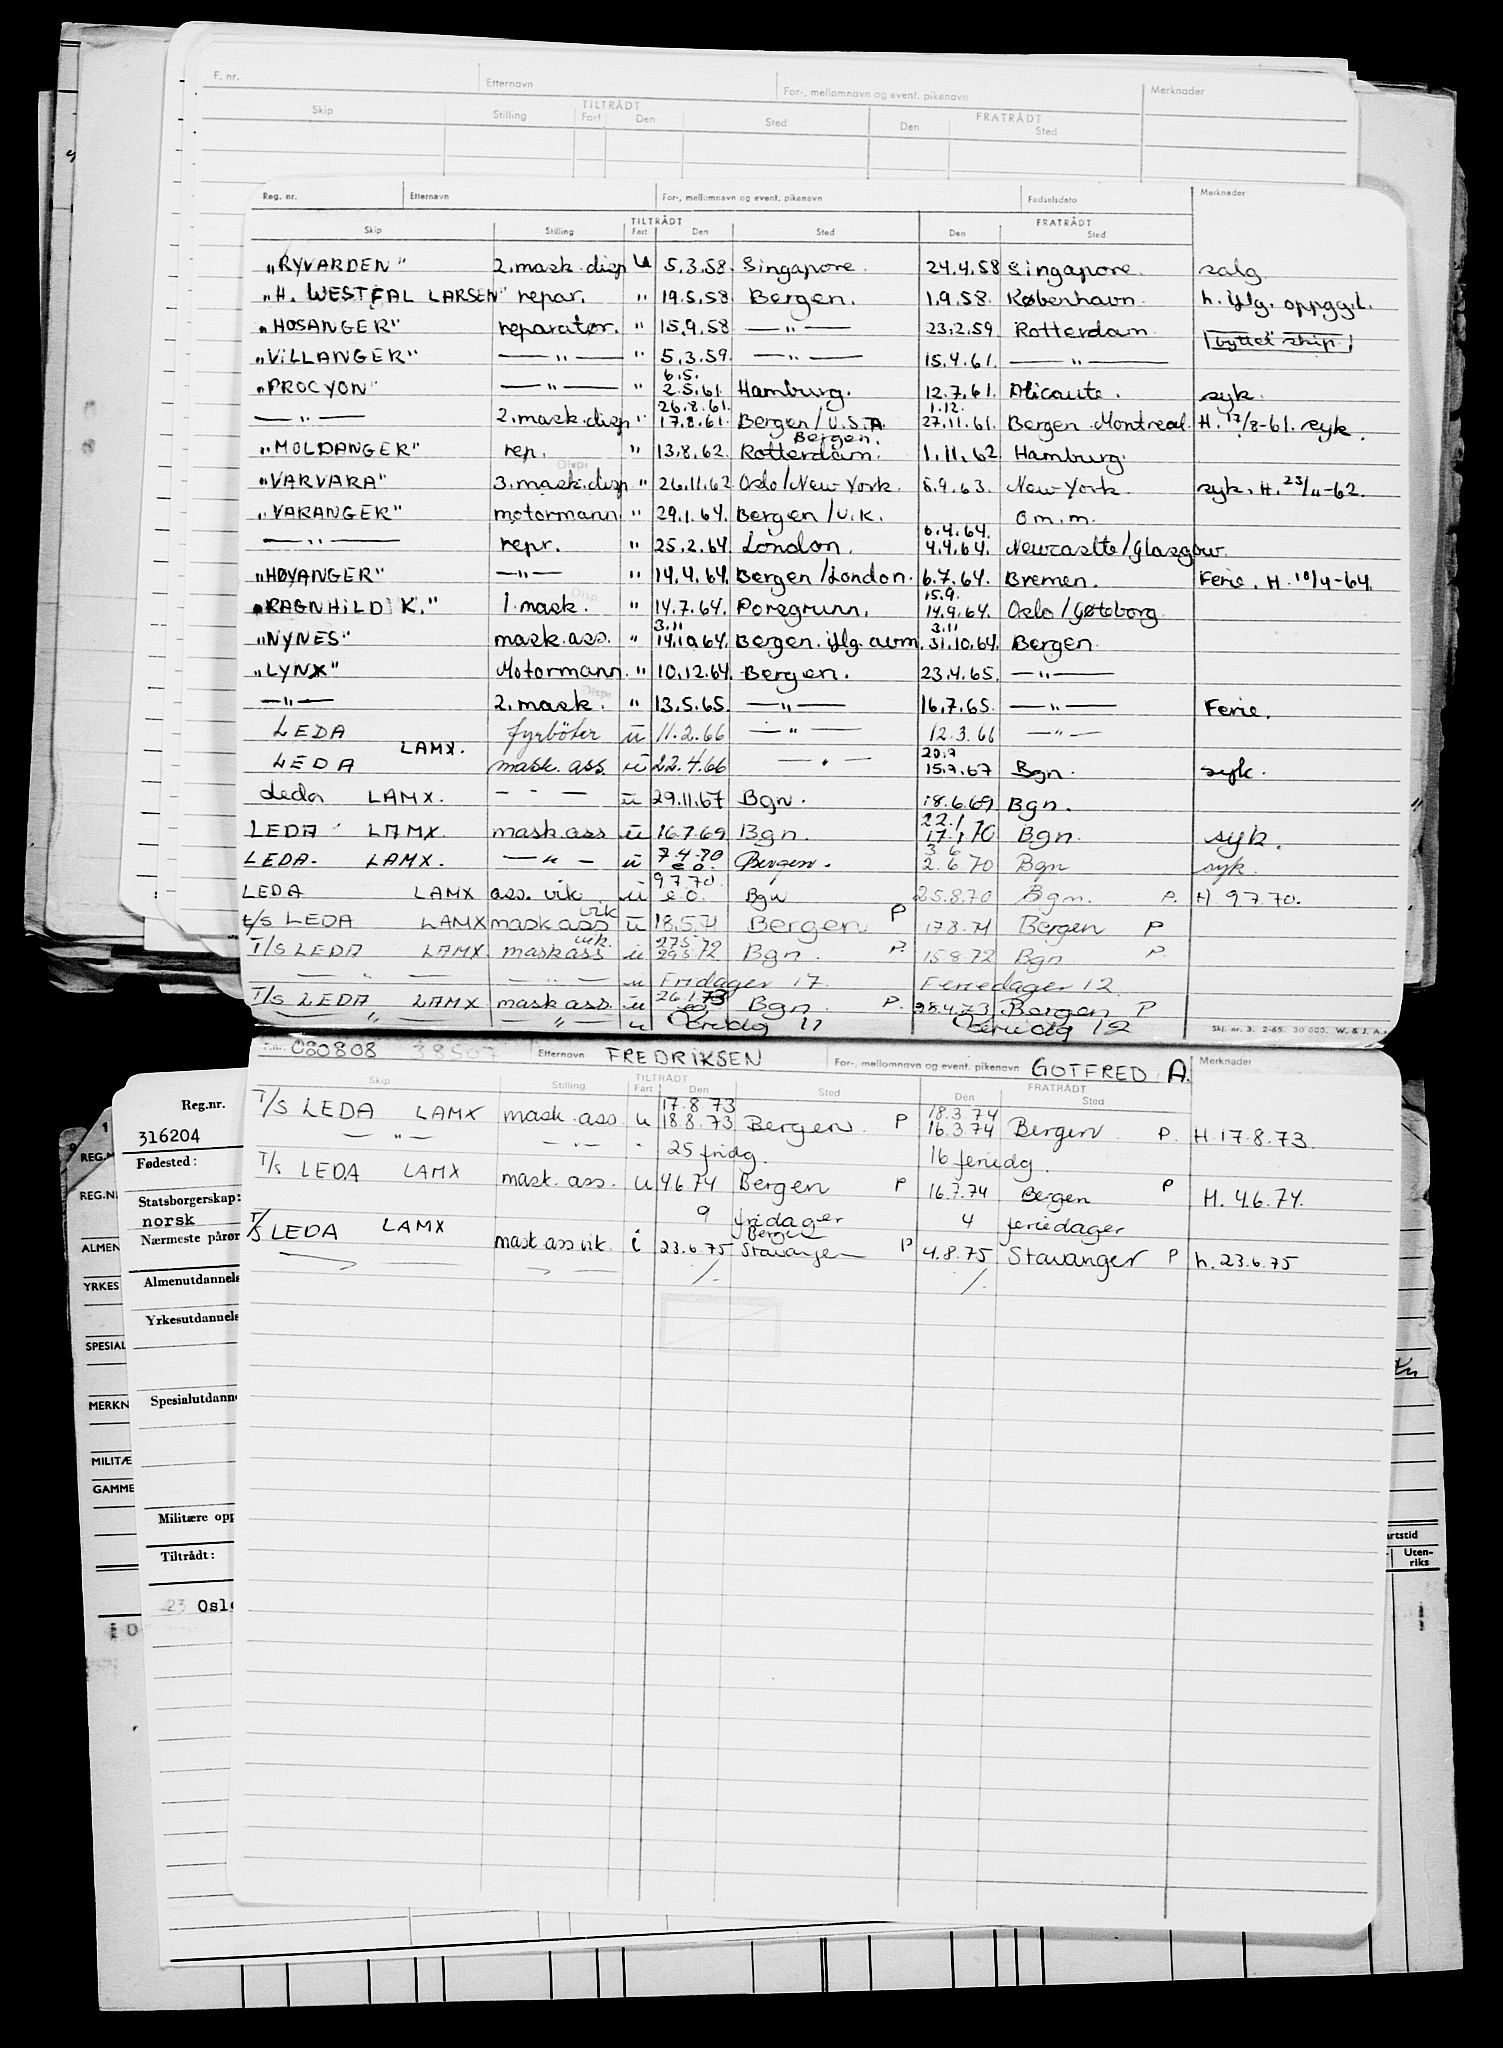 F. nr. Etternavn For-, mellomnavn og event. pikenavn Merknader
TILTRÅDT FRATRÅDT
Skip Stilling Fart Den Sted Den Sted
Reg. nr. Etternavn For-, mellomnavn og event. pikenavn Fødselsdato Merknader
TILTRÅDT FRATRÅDT
Skip Stilling Fart Den Sted Den Sted
"RYVARDEN" 2. mask. disp U 5.3.58. Singapore. 24.4.58 Singapore. salg
"H. WESTFAL LARSEN" repar. " 19.5.58 Bergen. 1.9.58. København. h. iflg. oppg.t.
"HOSANGER" reparatør. " 15.9.58 — " — 23.2.59 Rotterdam byttet skip
"VILLANGER" — " — " 5.3.59. — " — 15.4.61. — " —
6.5.
"PROCYON" — " — " 2.5.61. Hamburg. 12.7.61. Alicante. syk.
26.8.61. 1.12.
— " — 2. mask. disp " 17.8.61. Bergen/U.S.A 27.11.61. Bergen. Montreal. H. 17/8-61. syk.
Bergen.
"MOLDANGER" rep. " 13.8.62. Rotterdam. 1.11.62 Hamburg.
Disp.
"VARVARA" 3. mask. disp " 26.11.62 Oslo/New York. 8.9.63. New York. syk. H. 23/11-62.
"VARANGER" motormann " 29.1.64. Bergen/U.K. o m.m.
6.4.64.
— " — repr. " 25.2.64 London. 4.4.64. Newcastle/Glasgow.
"HØYANGER" — " — " 14.4.64. Bergen/London. 6.7.64. Bremen. Ferie. H. 10/4-64.
Disp. 15.9.
"RAGNHILD K." 1. mask. " 14.7.64. Porsgrunn. 14.9.64. Oslo/Gøteborg
3.11 3.11
"NYNES" mask. ass. " 14.10.64. Bergen. iflg. avm. 31.10.64. Bergen.
"LYNX" Motormann. " 10.12.64. Bergen. 23.4.65. — " —
Disp.
— " — 2. mask. " 13.5.65. — " — 16.7.65. — " — Ferie.
LEDA fyrbøter u 11.2.66 — " — 12.3.66 — " —
LAMX. 20.7
LEDA mask. ass. u 22.4.66 — " — 15.7.67 Bgn. syk.
Leda LAMX. — " — u 29.11.67 Bgn. 18.6.69 Bgn.
22.1
LEDA LAMX. mask ass u 16.7.69 Bgn. 17.1.70 Bgn. syk.
7.4.70 3.6
LEDA. LAMX. — " — u e.o. Bergen. 2.6.70 Bgn syk.
9.7.70.
LEDA LAMX ass. vik. u e.o. Bgn 25.8.70 Bgn. P. H 9.7.70.
vik
t/s LEDA LAMX mask ass u 18.5.71 Bergen P 17.8.71 Bergen P
vik. 27.5.72
T/s LEDA LAMX. mask ass u 29.5.72 Bgn. P. 15.8.72 Bgn P.
— " — — " — u Fridager 17. Feriedager 12.
26.1.73
T/s LEDA LAMX mask ass. u e.o. Bgn. P. 28.4.73 Bergen P
— " — — " — u Feriedg 12
Skj. nr. 3. 2-65. 30 000. W. & J. A.
F.nr. 080808 38507 Etternavn FREDRIKSEN For-, mellomnavn og event. pikenavn GOTFRED A. Merknader
TILTRÅDT FRATRÅDT
Skip Stilling Fart Den Sted Den Sted
17.8.73 18.3.74
T/s LEDA LAMX mask. ass u 18.8.73 Bergen. P 16.3.74 Bergen. P. H. 17.8.73.
— " — — " — " 25 fridg. 16 feriedg.
T/s LEDA LAMX mask. ass. u 4.6.74 Bergen P 16.7.74 Bergen P H. 4.6.74.
9 fridager 4 feriedager
T/s LEDA LAMX Bergen
mask ass vik. i 23.6.75 Stavanger P 4.8.75 Stavanger P h. 23.6.75
/. /.
Reg.nr.
316204
Fødested:
Statsborgerskap:
norsk
Nærmeste påror
Almenutdannels
Yrkesutdannels
Spesialutdanne
Militære opp
Tiltrådt:
23 Oslo
REG.N
REG.N
ALMEN
YRKES
SPESIAL
MERKN
MILITÆ
GAMME
artstid
Uten-
riks